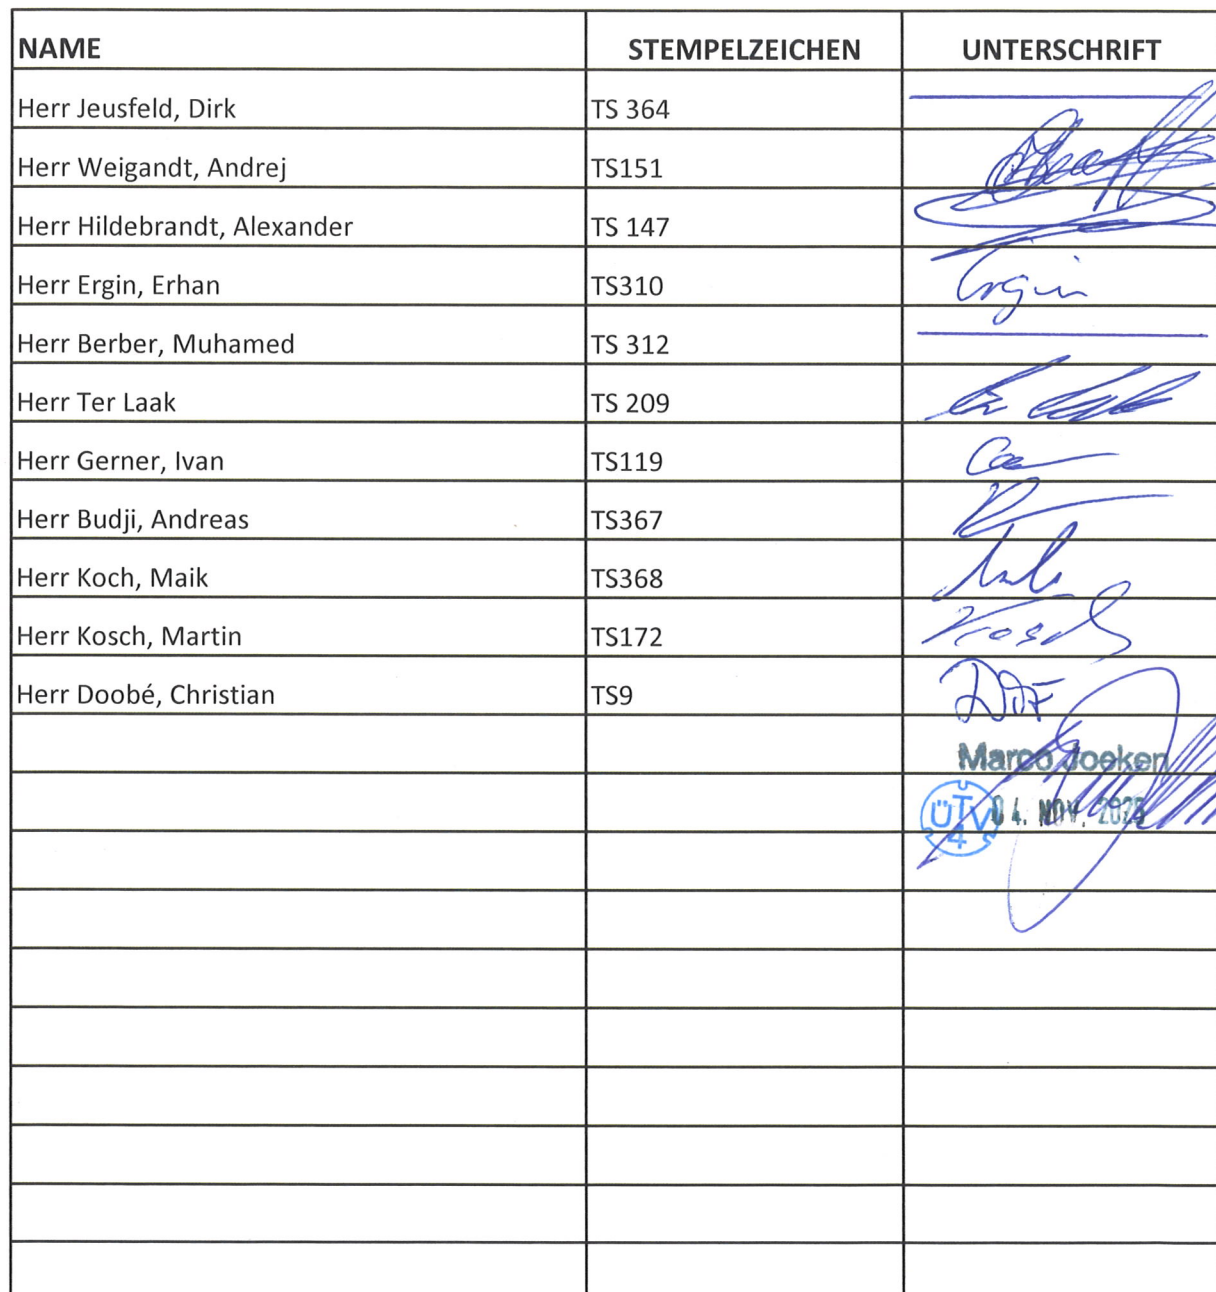 NAME STEMPELZEICHEN UNTERSCHRIFT
Herr Jeusfeld, Dirk TS 364
Herr Weigandt, Andrej TS151
Herr Hildebrandt, Alexander TS 147
Herr Ergin, Erhan TS310 Ergin
Herr Berber, Muhamed TS 312
Herr Ter Laak TS 209
Herr Gerner, Ivan TS119
Herr Budji, Andreas TS367
Herr Koch, Maik TS368
Herr Kosch, Martin TS172 Kosch
Herr Doobé, Christian TS9
Marco Joeken
ÜTV 04. NOV. 2025
4